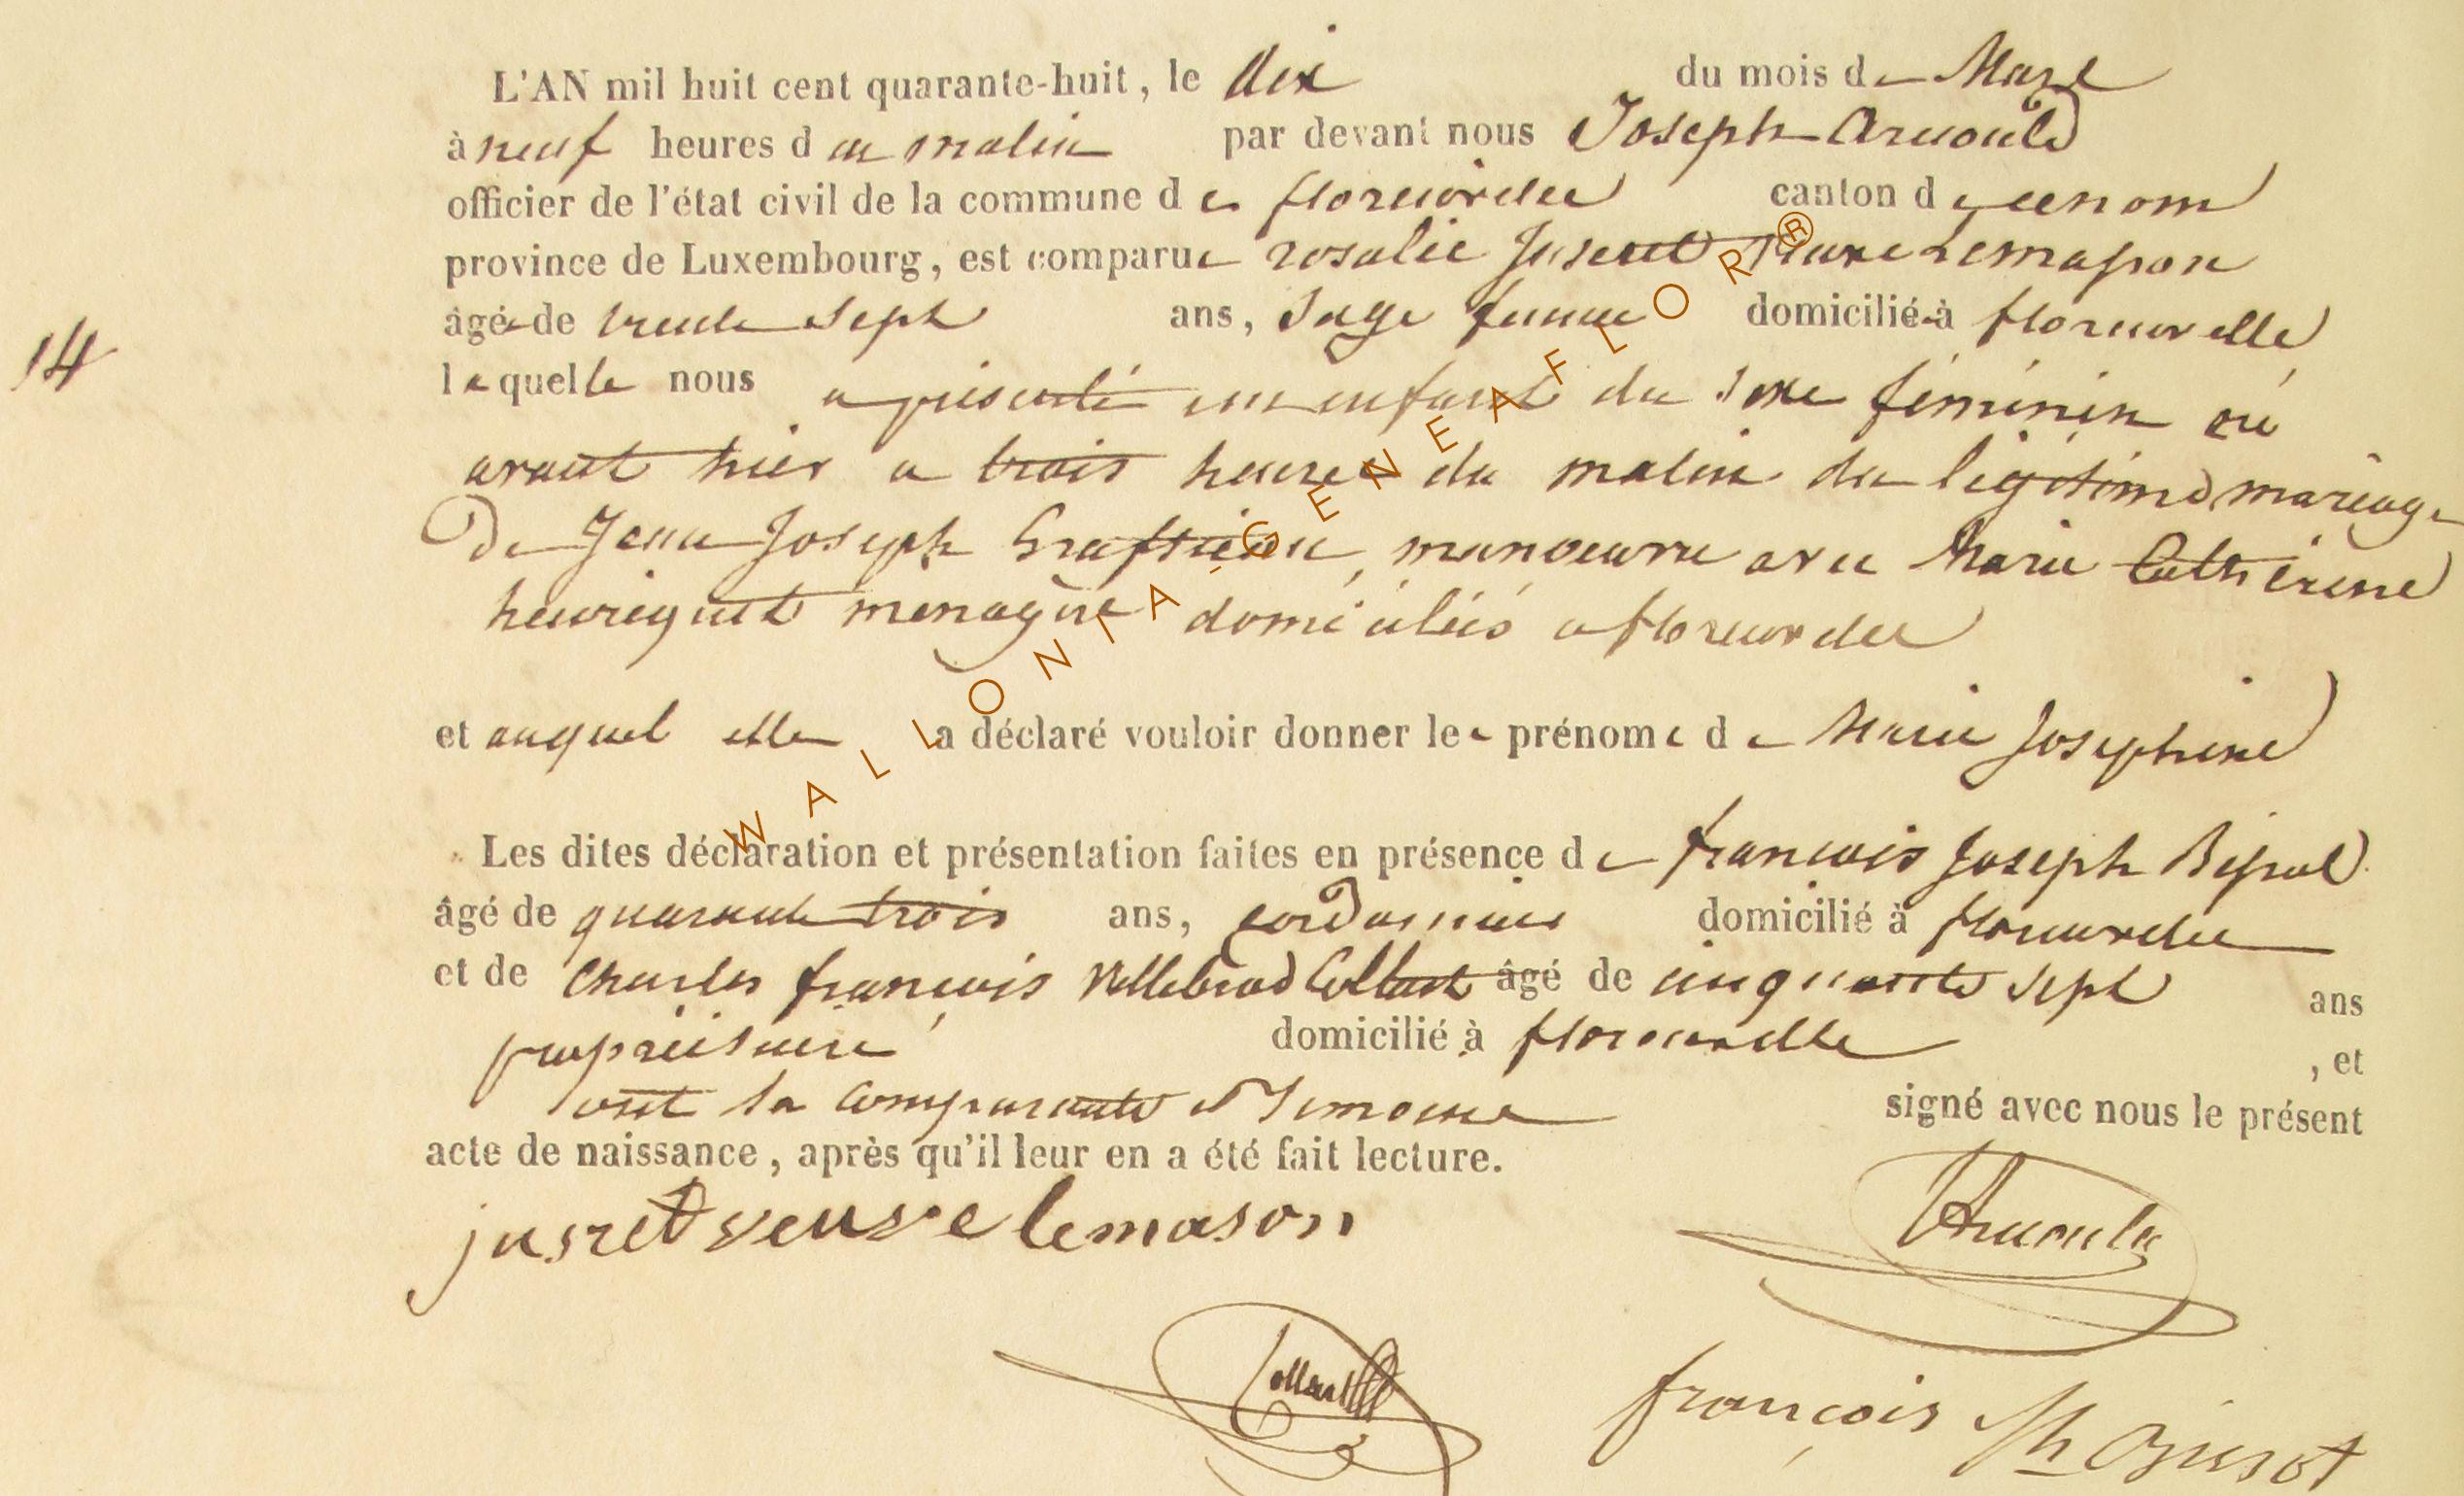 L'AN mil huit cent quarante-huit, le dix du mois de Mars
à neuf heures du matin par devant nous Joseph Arnould
officier de l'état civil de la commune de florenville canton de
province de Luxembourg, est comparue rosalie Jusseret veuve Lemasson
âgée de trente sept ans, Sage femme domiciliée à florenville
laquelle nous a présenté un enfant du sexe féminin né
14
avant hier a trois heures du matin du légitime mariage
De Jean Joseph manœuvre avec Marie Catherine
henriquet menagère domiciliés a florenville
et auquel elle a déclaré vouloir donner les prénoms de Marie Josephine
Les dites déclaration et présentation faites en présence de francois Joseph
âgé de quarante trois ans, cordonnier domicilié à florenville
et de Charles françois Willebrod Collart âgé de cinquante sept ans
propriétaire domicilié à florenville , et
ont la comparante et Temoins signé avec nous le présent
acte de naissance, après qu'il leur en a été fait lecture.
jusret veuve lemason
Arnould
Collart
françois Jh
WALLONIA GENEAFLOR®